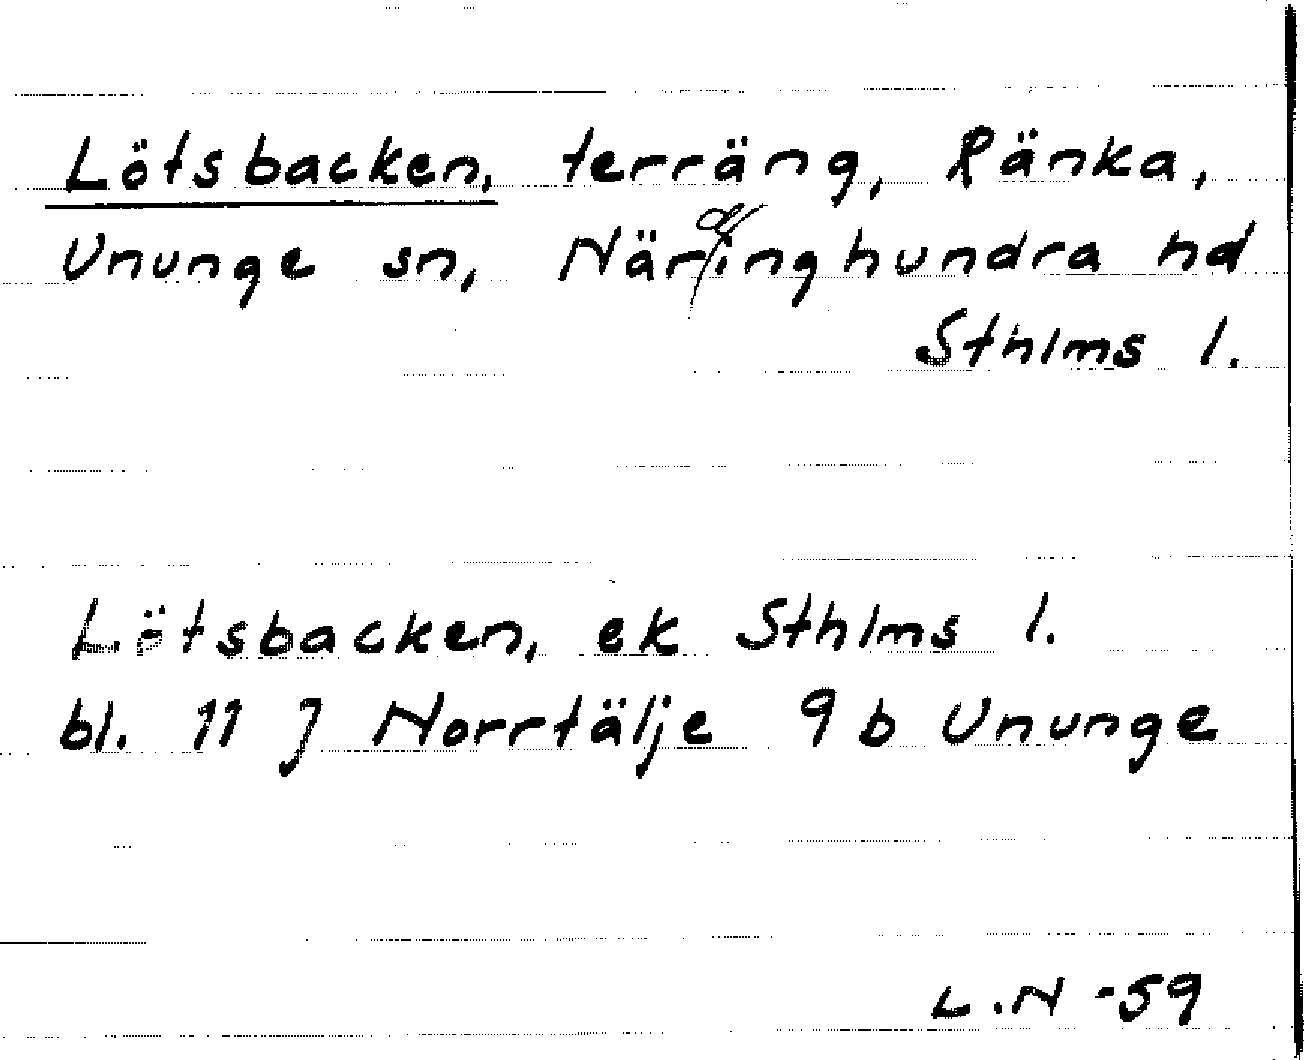 Lötsbacken, terräng, Ränka,
Ununge sn, Näringhundra hd
Sthlms l.
Lötsbacken, ek Sthlms l.
bl. 11 J Norrtälje 9 b Ununge
L.N -59